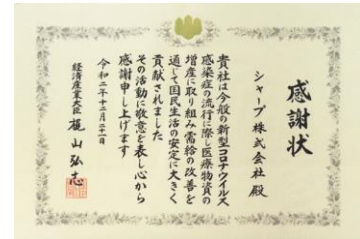 感謝状
シャープ株式会社 殿
貴社は今般の新型コロナウイルス
感染症の流行に際し医療物資の
増産に取り組み需給の改善を
通して国民生活の安定に大きく
貢献されました
その活動に敬意を表し心から
感謝申し上げます
令和二年十二月二十一日
経済産業大臣 梶山弘志